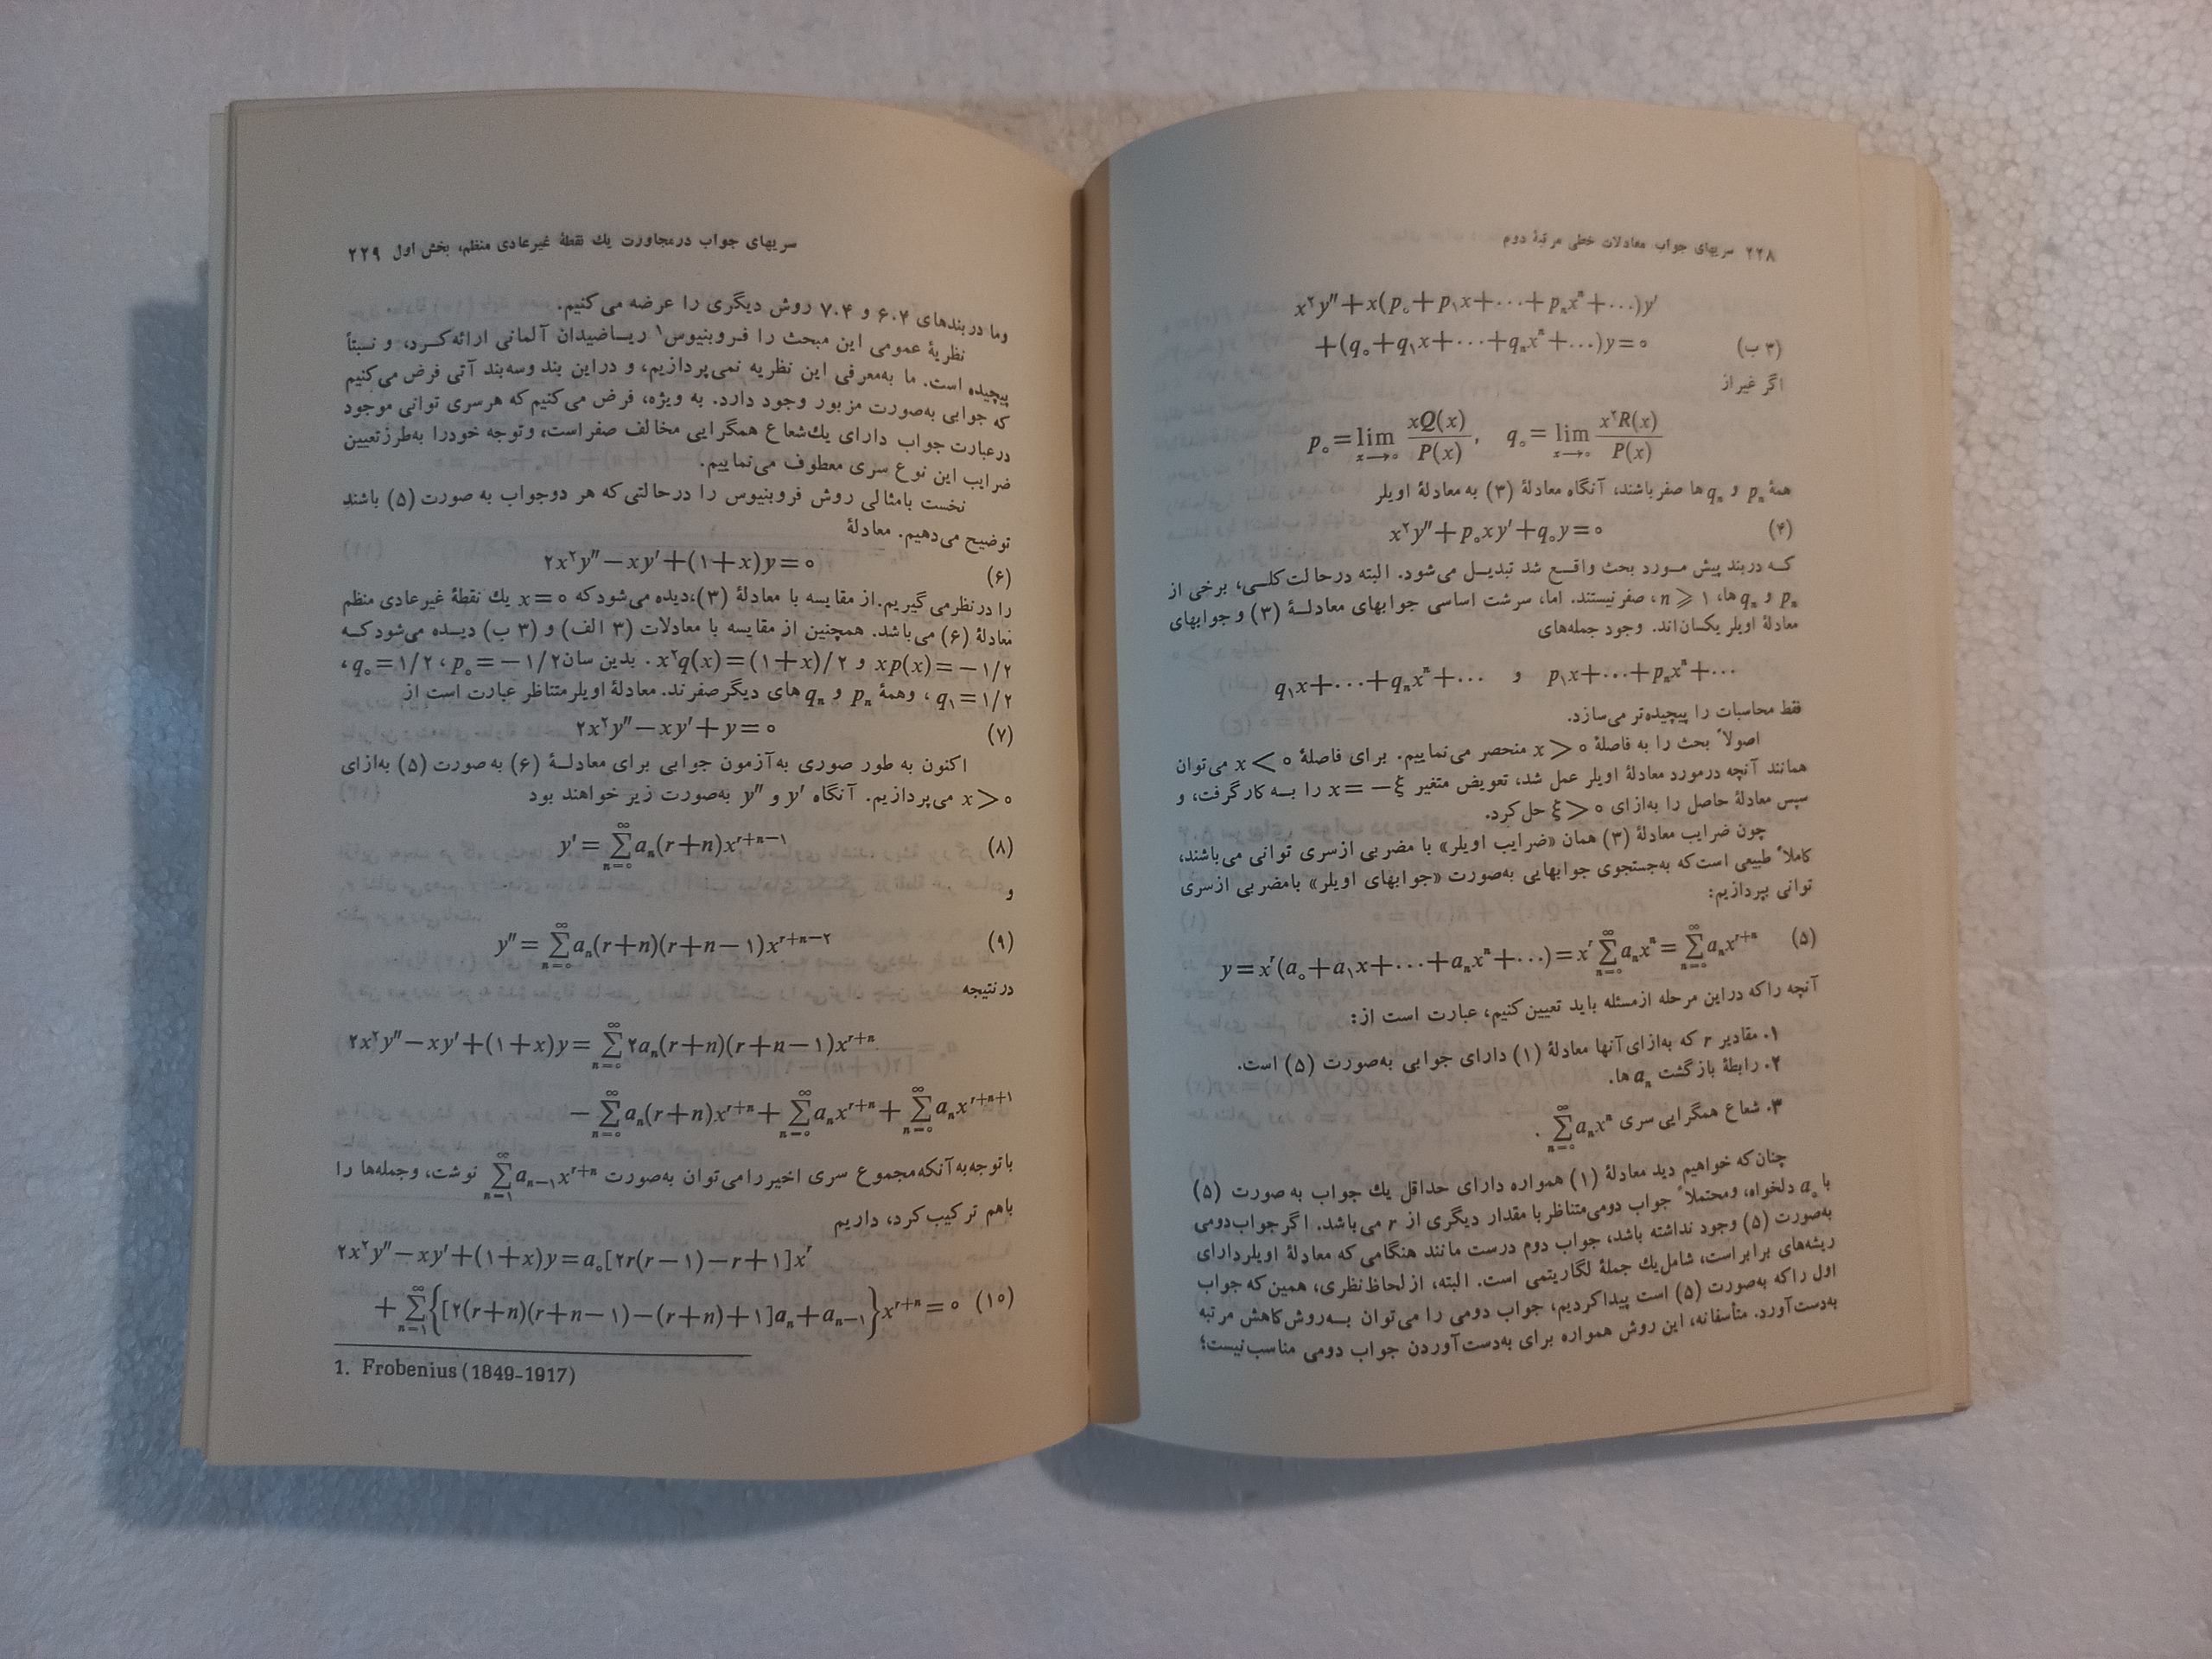 ۲۲۸ سریهای جواب معادلات خطی مرتبهٔ دوم
x²y″+x(p₀+p₁x+...+pₙxⁿ+...)y′
(۳ ب) +(q₀+q₁x+...+qₙxⁿ+...)y=۰
اگر غیر از
p₀=lim_{x→۰} xQ(x)/P(x), q₀=lim_{x→۰} x²R(x)/P(x)
همهٔ pₙ و qₙ ها صفر باشند، آنگاه معادلهٔ (۳) به معادلهٔ اویلر
(۴) x²y″+p₀xy′+q₀y=۰
که در بند پیش مورد بحث واقع شد تبدیل می‌شود. البته در حالت کلی، برخی از
pₙ و qₙ ها، n⩾۱، صفر نیستند. اما، سرشت اساسی جوابهای معادلهٔ (۳) و جوابهای
معادلهٔ اویلر یکسان‌اند. وجود جمله‌های
p₁x+...+pₙxⁿ+... و q₁x+...+qₙxⁿ+...
فقط محاسبات را پیچیده‌تر می‌سازد.
اصولاً بحث را به فاصلهٔ x>۰ منحصر می‌نماییم. برای فاصلهٔ x<۰ می‌توان
همانند آنچه در مورد معادلهٔ اویلر عمل شد، تعویض متغیر x=−ξ را به کار گرفت، و
سپس معادلهٔ حاصل را به‌ازای ξ>۰ حل کرد.
چون ضرایب معادلهٔ (۳) همان «ضرایب اویلر» با مضربی از سری توانی می‌باشند،
کاملاً طبیعی است که به‌جستجوی جوابهایی به‌صورت «جوابهای اویلر» با مضربی از سری
توانی بپردازیم:
(۵) y=xʳ(a₀+a₁x+...+aₙxⁿ+...)=xʳ∑_{n=۰}^{∞}aₙxⁿ=∑_{n=۰}^{∞}aₙx^{r+n}
آنچه را که در این مرحله از مسئله باید تعیین کنیم، عبارت است از:
۱. مقادیر r که به‌ازای آنها معادلهٔ (۱) دارای جوابی به‌صورت (۵) است.
۲. رابطهٔ بازگشت aₙ ها.
۳. شعاع همگرایی سری ∑_{n=۰}^{∞}aₙxⁿ .
چنان‌که خواهیم دید معادلهٔ (۱) همواره دارای حداقل یك جواب به صورت (۵)
با a₀ دلخواه، و محتملاً جواب دومی متناظر با مقدار دیگری از r می‌باشد. اگر جواب دومی
به‌صورت (۵) وجود نداشته باشد، جواب دوم درست مانند هنگامی که معادلهٔ اویلر دارای
ریشه‌های برابر است، شامل یك جملهٔ لگاریتمی است. البته، از لحاظ نظری، همین که جواب
اول را که به‌صورت (۵) است پیدا کردیم، جواب دومی را می‌توان به‌روش کاهش مرتبه
به‌دست آورد. متأسفانه، این روش همواره برای به‌دست آوردن جواب دومی مناسب نیست؛
سریهای جواب در مجاورت یك نقطهٔ غیرعادی منظم، بخش اول ۲۲۹
و ما در بندهای ۶.۴ و ۷.۴ روش دیگری را عرضه می‌کنیم.
نظریهٔ عمومی این مبحث را فروبنیوس¹ ریاضیدان آلمانی ارائه کرد، و نسبتاً
پیچیده است. ما به‌معرفی این نظریه نمی‌پردازیم، و در این بند و سه بند آتی فرض می‌کنیم
که جوابی به‌صورت مزبور وجود دارد. به ویژه، فرض می‌کنیم که هر سری توانی موجود
در عبارت جواب دارای یك شعاع همگرایی مخالف صفر است، و توجه خود را به‌طرز تعیین
ضرایب این نوع سری معطوف می‌نماییم.
نخست با مثالی روش فروبنیوس را در حالتی که هر دو جواب به صورت (۵) باشند
توضیح می‌دهیم. معادلهٔ
(۶) ۲x²y″−xy′+(۱+x)y=۰
را در نظر می‌گیریم. از مقایسه با معادلهٔ (۳)، دیده می‌شود که x=۰ یك نقطهٔ غیرعادی منظم
معادلهٔ (۶) می‌باشد. همچنین از مقایسه با معادلات (۳ الف) و (۳ ب) دیده می‌شود که
xp(x)=−۱/۲ و x²q(x)=(۱+x)/۲. بدین سان p₀=−۱/۲، q₀=۱/۲،
q₁=۱/۲، و همهٔ pₙ و qₙ های دیگر صفرند. معادلهٔ اویلر متناظر عبارت است از
(۷) ۲x²y″−xy′+y=۰
اکنون به طور صوری به آزمون جوابی برای معادلهٔ (۶) به صورت (۵) به‌ازای
x>۰ می‌پردازیم. آنگاه y′ و y″ به‌صورت زیر خواهند بود
(۸) y′=∑_{n=۰}^{∞}aₙ(r+n)x^{r+n−۱}
و
(۹) y″=∑_{n=۰}^{∞}aₙ(r+n)(r+n−۱)x^{r+n−۲}
در نتیجه
۲x²y″−xy′+(۱+x)y=∑_{n=۰}^{∞}۲aₙ(r+n)(r+n−۱)x^{r+n}
−∑_{n=۰}^{∞}aₙ(r+n)x^{r+n}+∑_{n=۰}^{∞}aₙx^{r+n}+∑_{n=۰}^{∞}aₙx^{r+n+۱}
با توجه به آنکه مجموع سری اخیر را می‌توان به‌صورت ∑_{n=۱}^{∞}aₙ₋₁x^{r+n} نوشت، و جمله‌ها را
باهم ترکیب کرد، داریم
۲x²y″−xy′+(۱+x)y=a₀[۲r(r−۱)−r+۱]xʳ
+∑_{n=۱}^{∞}{[۲(r+n)(r+n−۱)−(r+n)+۱]aₙ+aₙ₋₁}x^{r+n}=۰ (۱۰)
1. Frobenius (1849-1917)